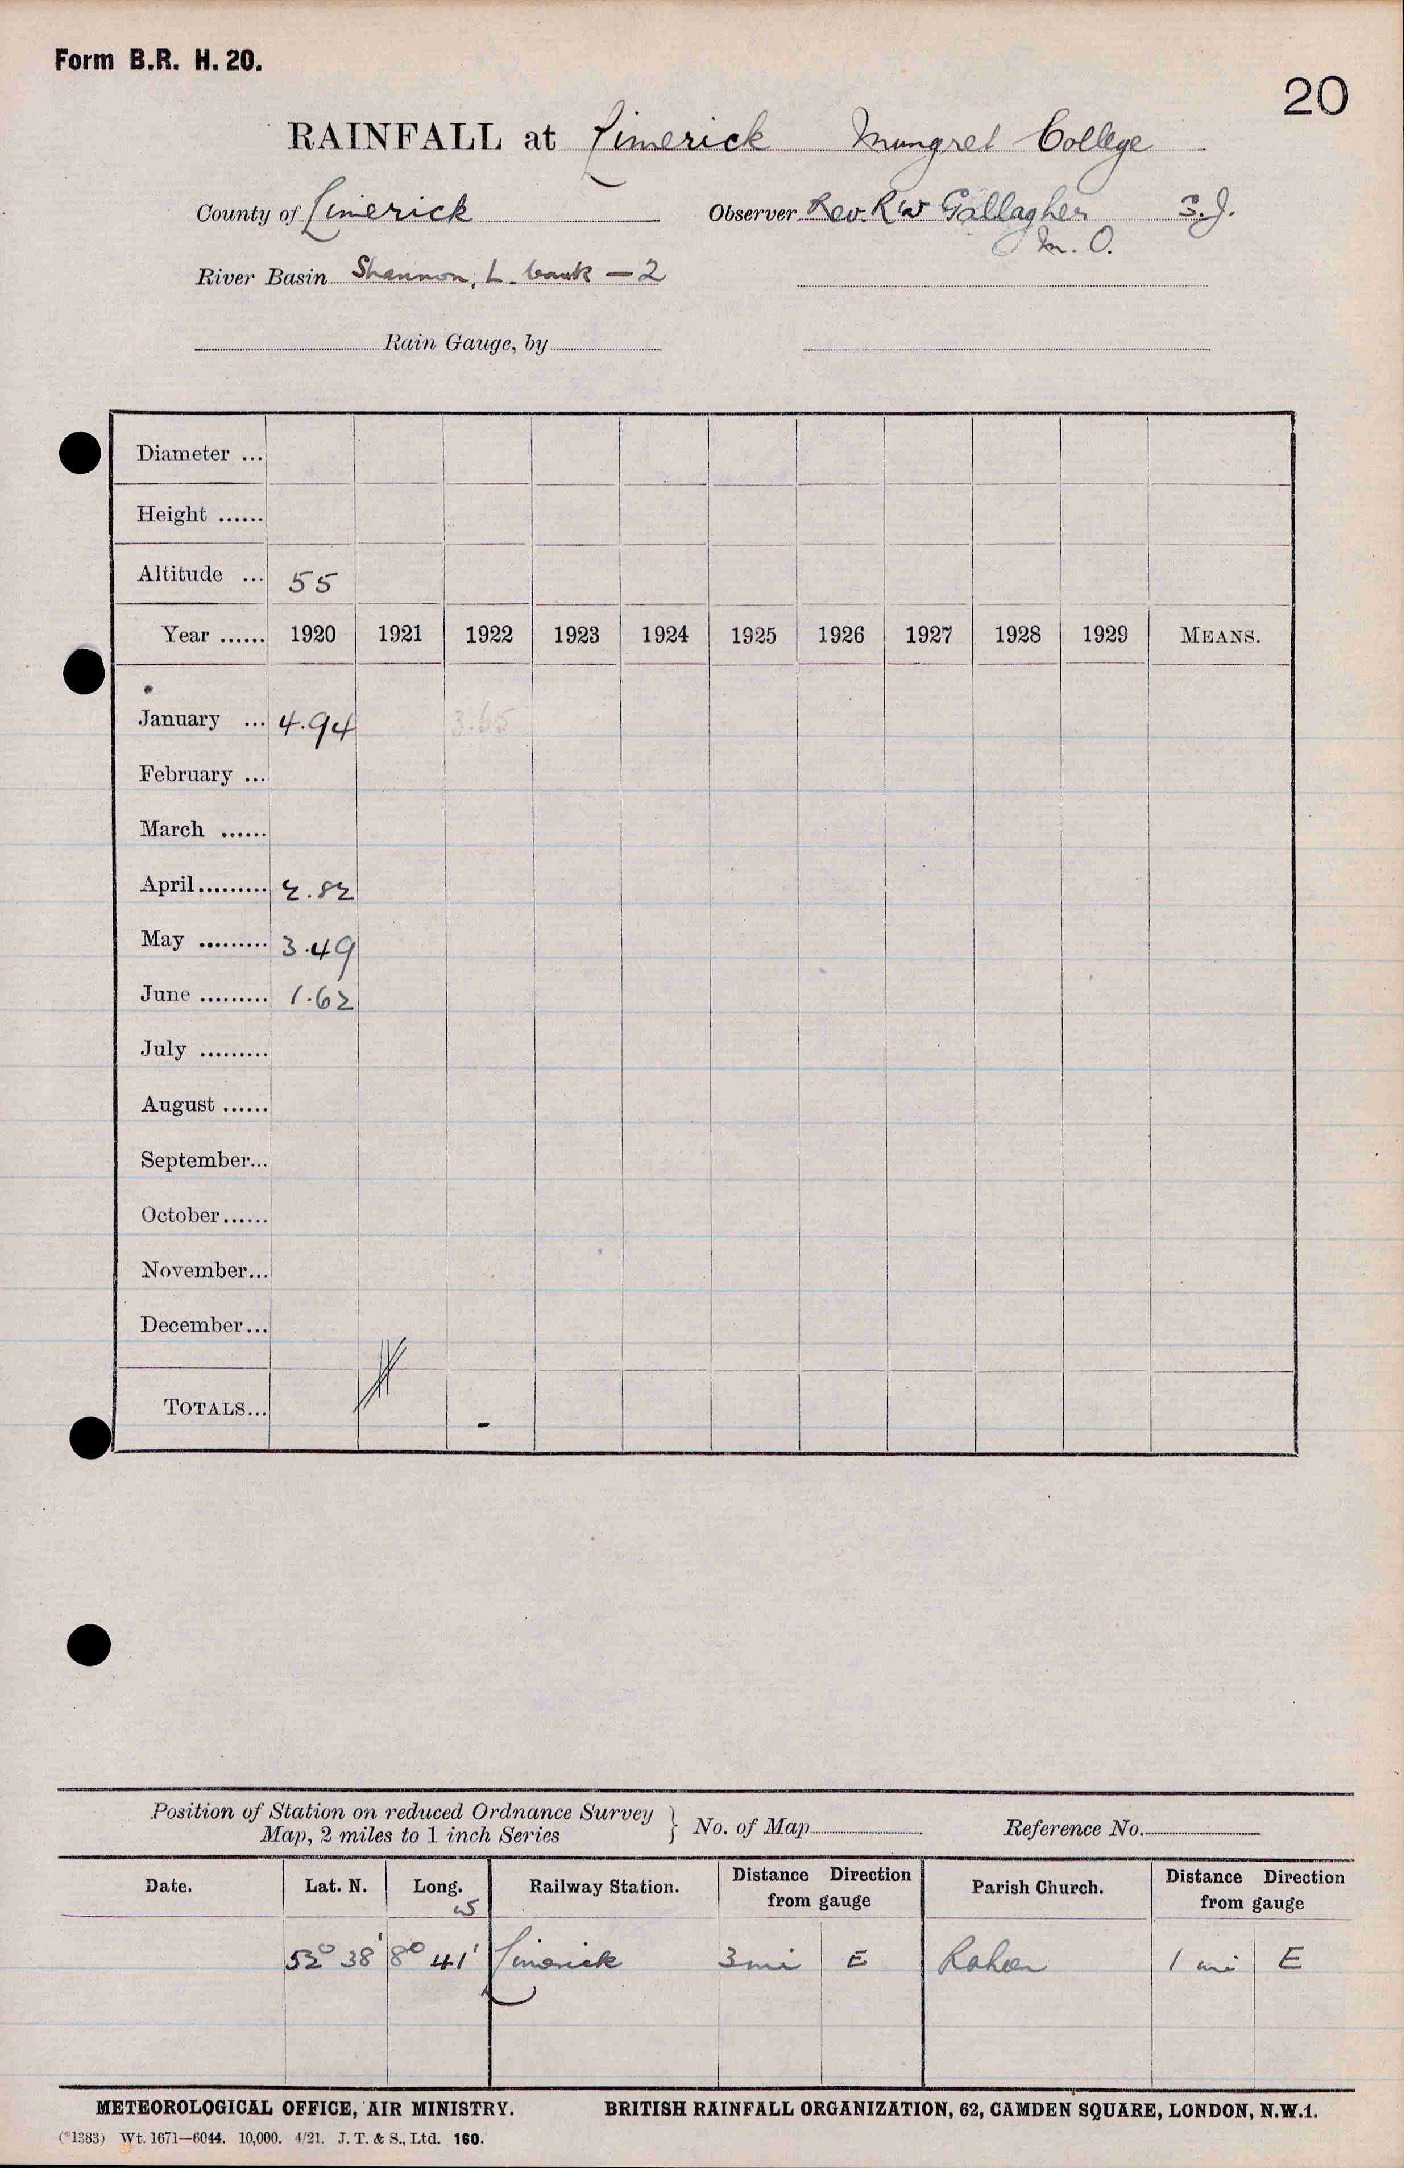 Form B.R. H. 20.
20
RAINFALL at Limerick Mungret College
County of Limerick Observer Rev. R W Gallagher S.J.
M. O.
River Basin Shannon, L. bank — 2
Rain Gauge, by
Diameter ...
Height ......
Altitude ... 55
Year ...... 1920 1921 1922 1923 1924 1925 1926 1927 1928 1929 MEANS.
January ... 4.94 3.65
February ...
March ......
April......... 2.82
May ......... 3.49
June ......... 1.62
July .........
August ......
September...
October......
November...
December...
TOTALS... -
Position of Station on reduced Ordnance Survey
Map, 2 miles to 1 inch Series } No. of Map Reference No.
Date. Lat. N. Long. W Railway Station. Distance Direction from gauge Parish Church. Distance Direction from gauge
52° 38' 8° 41' Limerick 3 mi E 1 mi E
METEOROLOGICAL OFFICE, AIR MINISTRY. BRITISH RAINFALL ORGANIZATION, 62, CAMDEN SQUARE, LONDON, N.W.1.
(*1383) Wt. 1671—6044. 10,000. 4/21. J. T. & S., Ltd. 160.